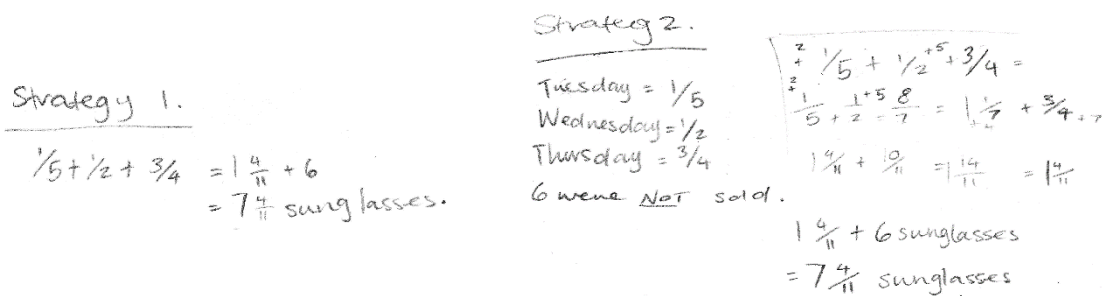 Strategy 1.
1/5 + 1/2 + 3/4 = 1 4/11 + 6
= 7 4/11 sunglasses.
Strateg 2.
Tuesday = 1/5
Wednesday = 1/2
Thursday = 3/4
6 were NOT sold.
1/5 + 1/2 +5 + 3/4 =
1/5 + 1/2 +5 = 8/7 = 1 1/7 + 3/4
1 4/11 + 10/11 = 1 14/11 = 1 4/11
1 4/11 + 6 sunglasses
= 7 4/11 sunglasses